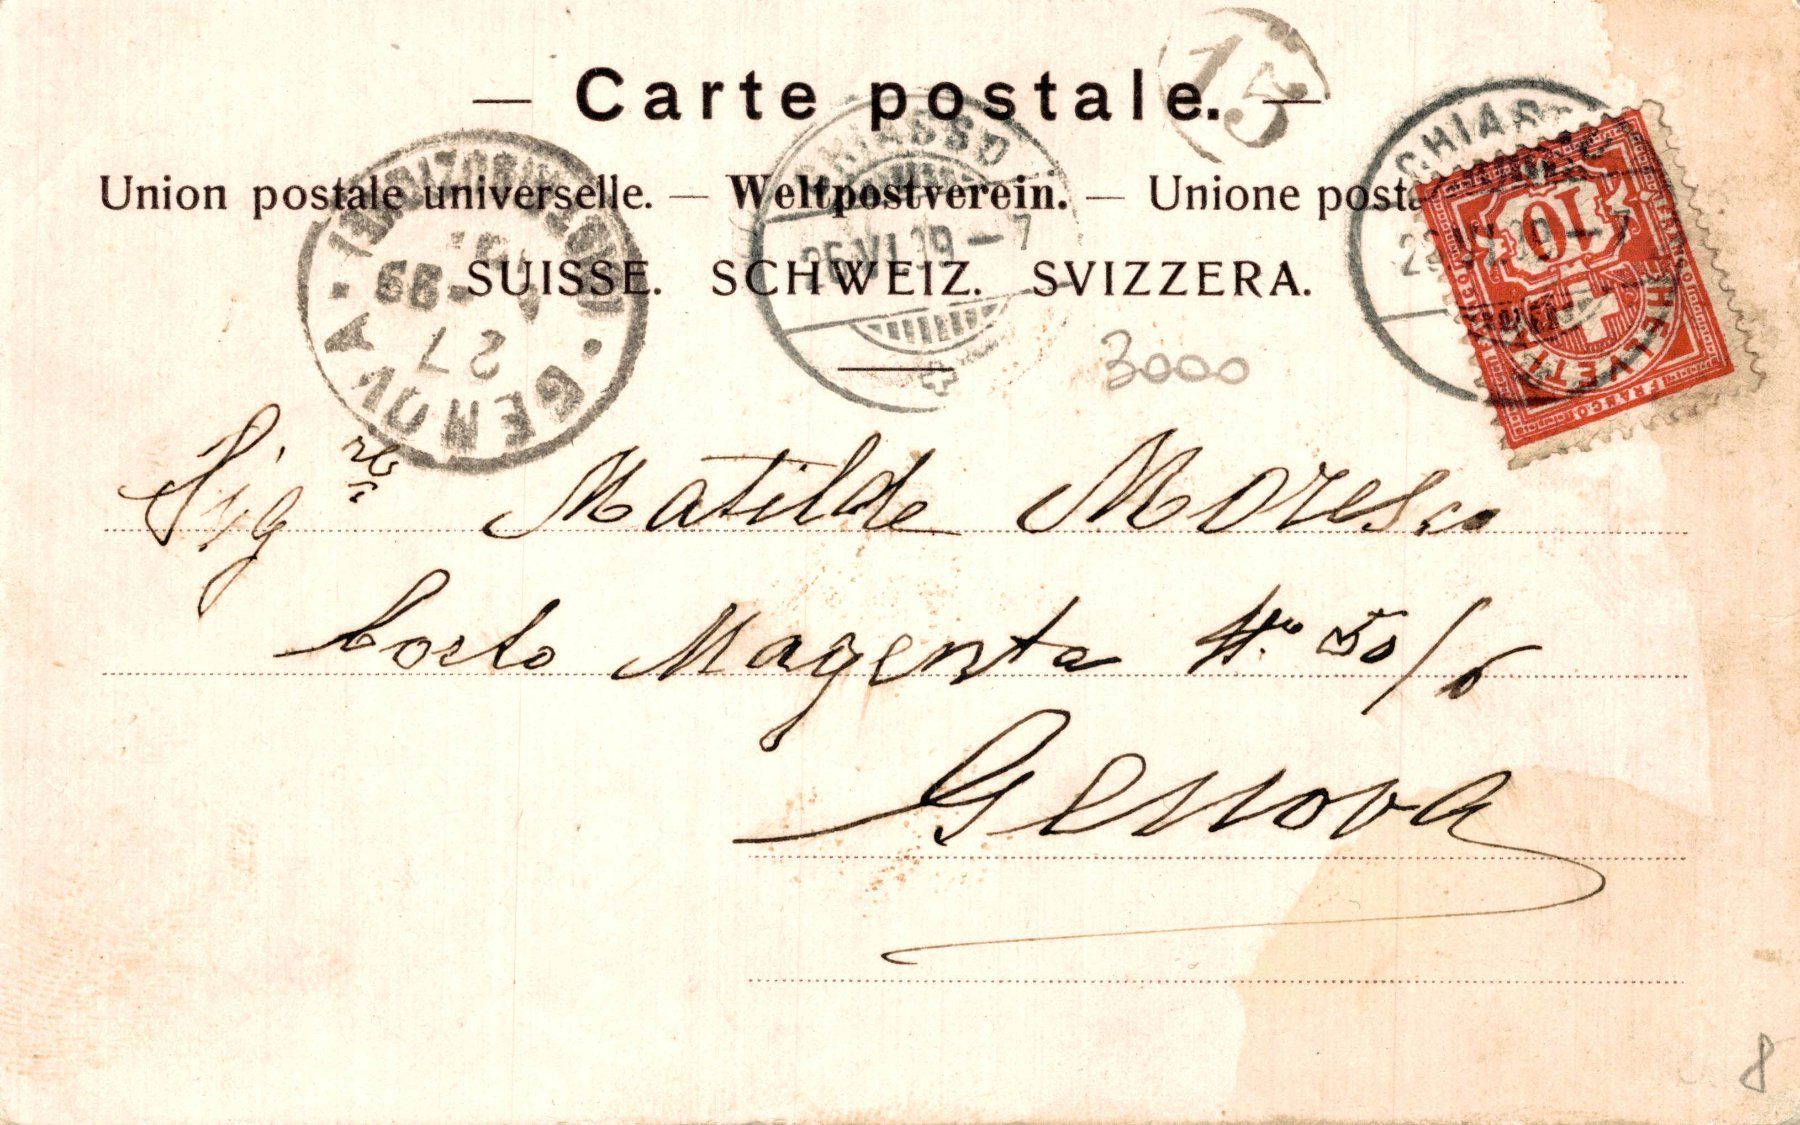 — Carte postale. —
15
Union postale universelle. — Weltpostverein. — Unione posta
SUISSE. SCHWEIZ. SVIZZERA.
CHIASSO
VI.99—7
CHIASSO
VI.99—7
GENOVA
27
99
10
HELVETIA
FRANCO
3000
Sig.re Matilde Moresco
Corso Magenta No 50/6
Genova
8